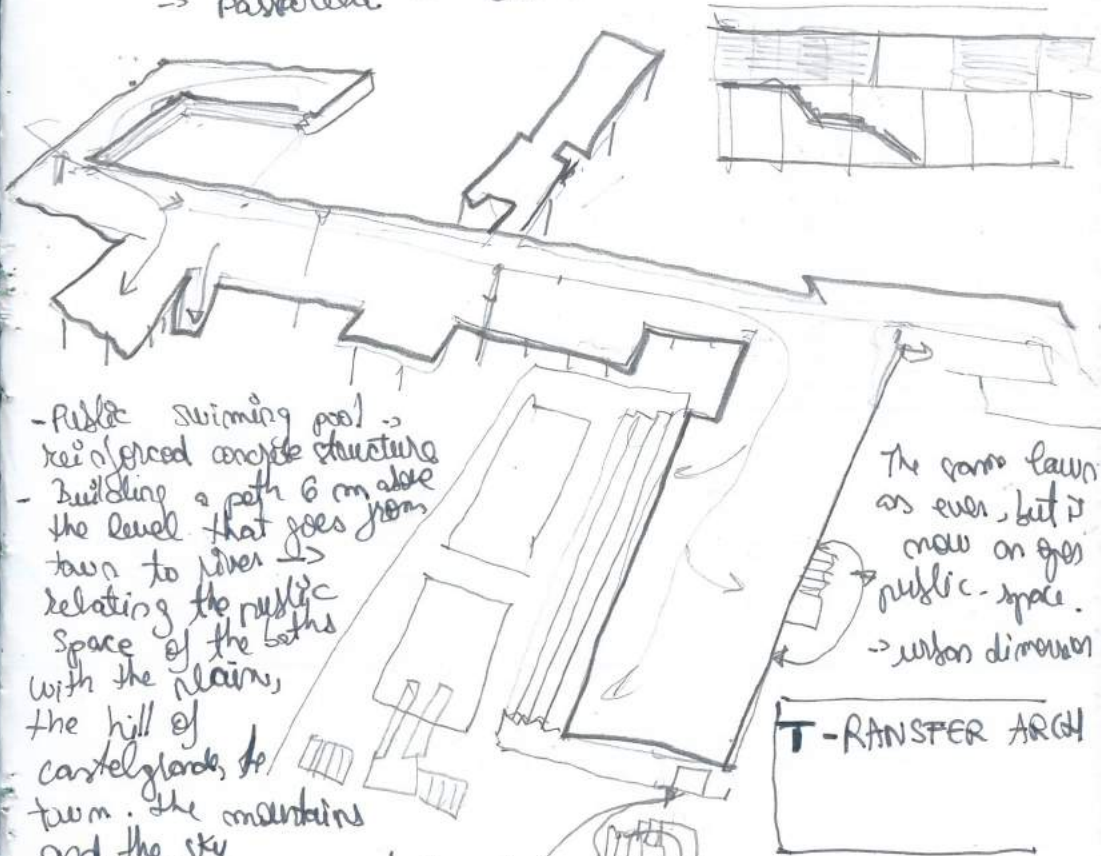 -> Passerelle
- Public swiming pool ->
reinforced concrete structure
- Building a path 6 m above
the level that goes from
town to river ->
relating the public
space of the baths
with the plain,
the hill of
castelgrande, the
town. the mountains
and the sky
The same lawn
as ever, but it
now an open
public-space.
-> urban dimension
T-RANSFER ARCH